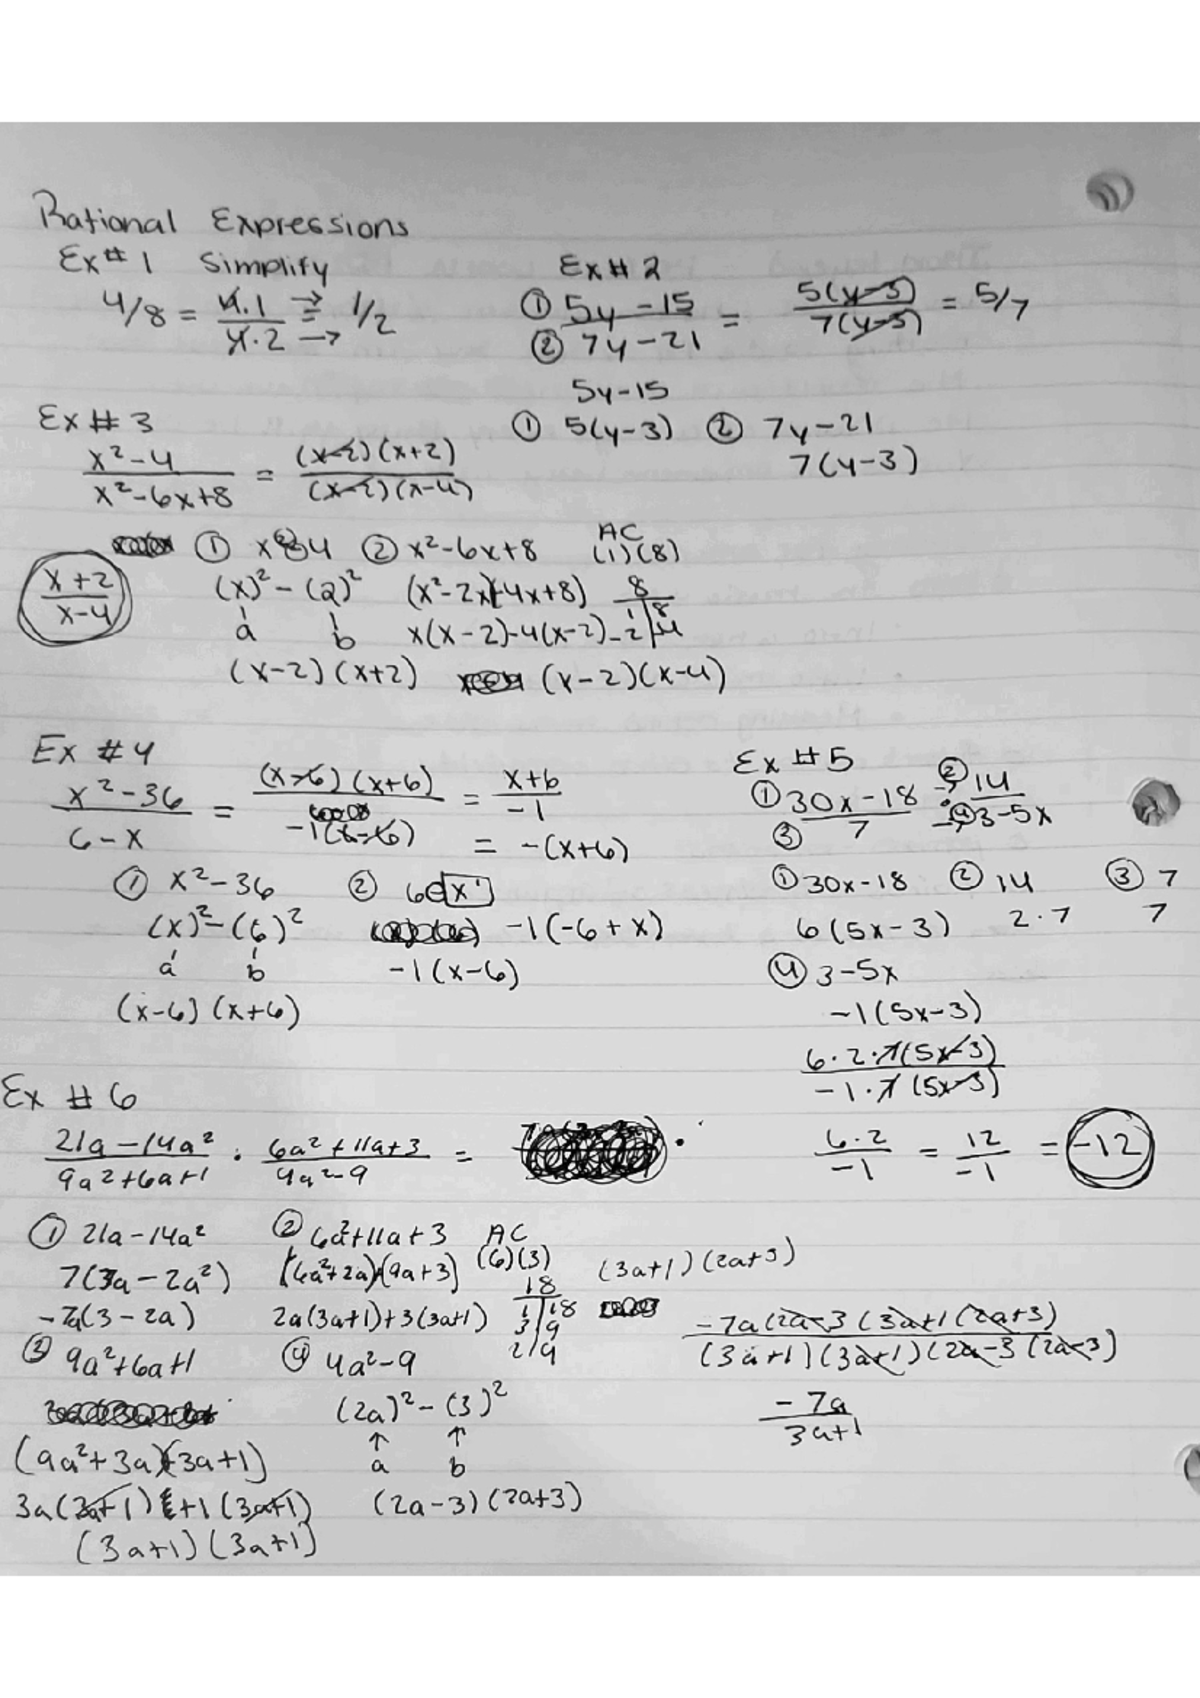 Rational Expressions
Ex# 1 Simplify
4/8 = 4·1 / 4·2 = 1/2
Ex # 2
① 5y-15 / ② 7y-21 = 5(y-3) / 7(y-3) = 5/7
5y-15
① 5(y-3) ② 7y-21
7(y-3)
Ex # 3
x²-4 / x²-6x+8 = (x-2)(x+2) / (x-2)(x-4)
① x²-4 ② x²-6x+8 AC
(1)(8)
x+2 / x-4
(x)² - (2)² (x²-2x)(-4x+8) 8
a b x(x-2)-4(x-2) 1|8
-2|-4
(x-2)(x+2) (x-2)(x-4)
Ex #4
x²-36 / 6-x = (x-6)(x+6) / -1(x-6) = x+6 / -1
= -(x+6)
① x²-36 ② 6-x
(x)²-(6)² -1(-6+x)
a b -1(x-6)
(x-6)(x+6)
Ex #5
① 30x-18 / ③ 7 ÷ ② 14 / ④ 3-5x
① 30x-18 ② 14 ③ 7
6(5x-3) 2·7 7
④ 3-5x
-1(5x-3)
6·2·7(5x-3) / -1·7(5x-3)
6·2 / -1 = 12 / -1 = -12
Ex #6
21a-14a² / 9a²+6a+1 · 6a²+11a+3 / 4a²-9 =
① 21a-14a² ② 6a²+11a+3 AC
7(3a-2a²) (6a²+2a)+(9a+3) (6)(3)
18
-7a(3-2a) 2a(3a+1)+3(3a+1) 1|18
3|9
2|9
(3a+1)(2a+3)
③ 9a²+6a+1 ④ 4a²-9
(2a)²-(3)²
(9a²+3a)(+3a+1) a b
3a(3a+1) +1(3a+1) (2a-3)(2a+3)
(3a+1)(3a+1)
-7a(2a-3(3a+1(2a+3) / (3a+1)(3a+1)(2a-3(2a-3)
-7a / 3a+1